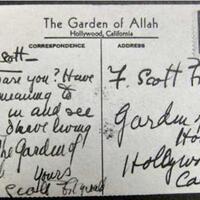 The Garden of Allah
Hollywood, California
CORRESPONDENCE
ADDRESS
Scott—
are you? Have
meaning to
in and see
about living
the Garden of
Yours
Scott Fitzgerald
F. Scott F
Garden
Ho
Hollywoo
Ca